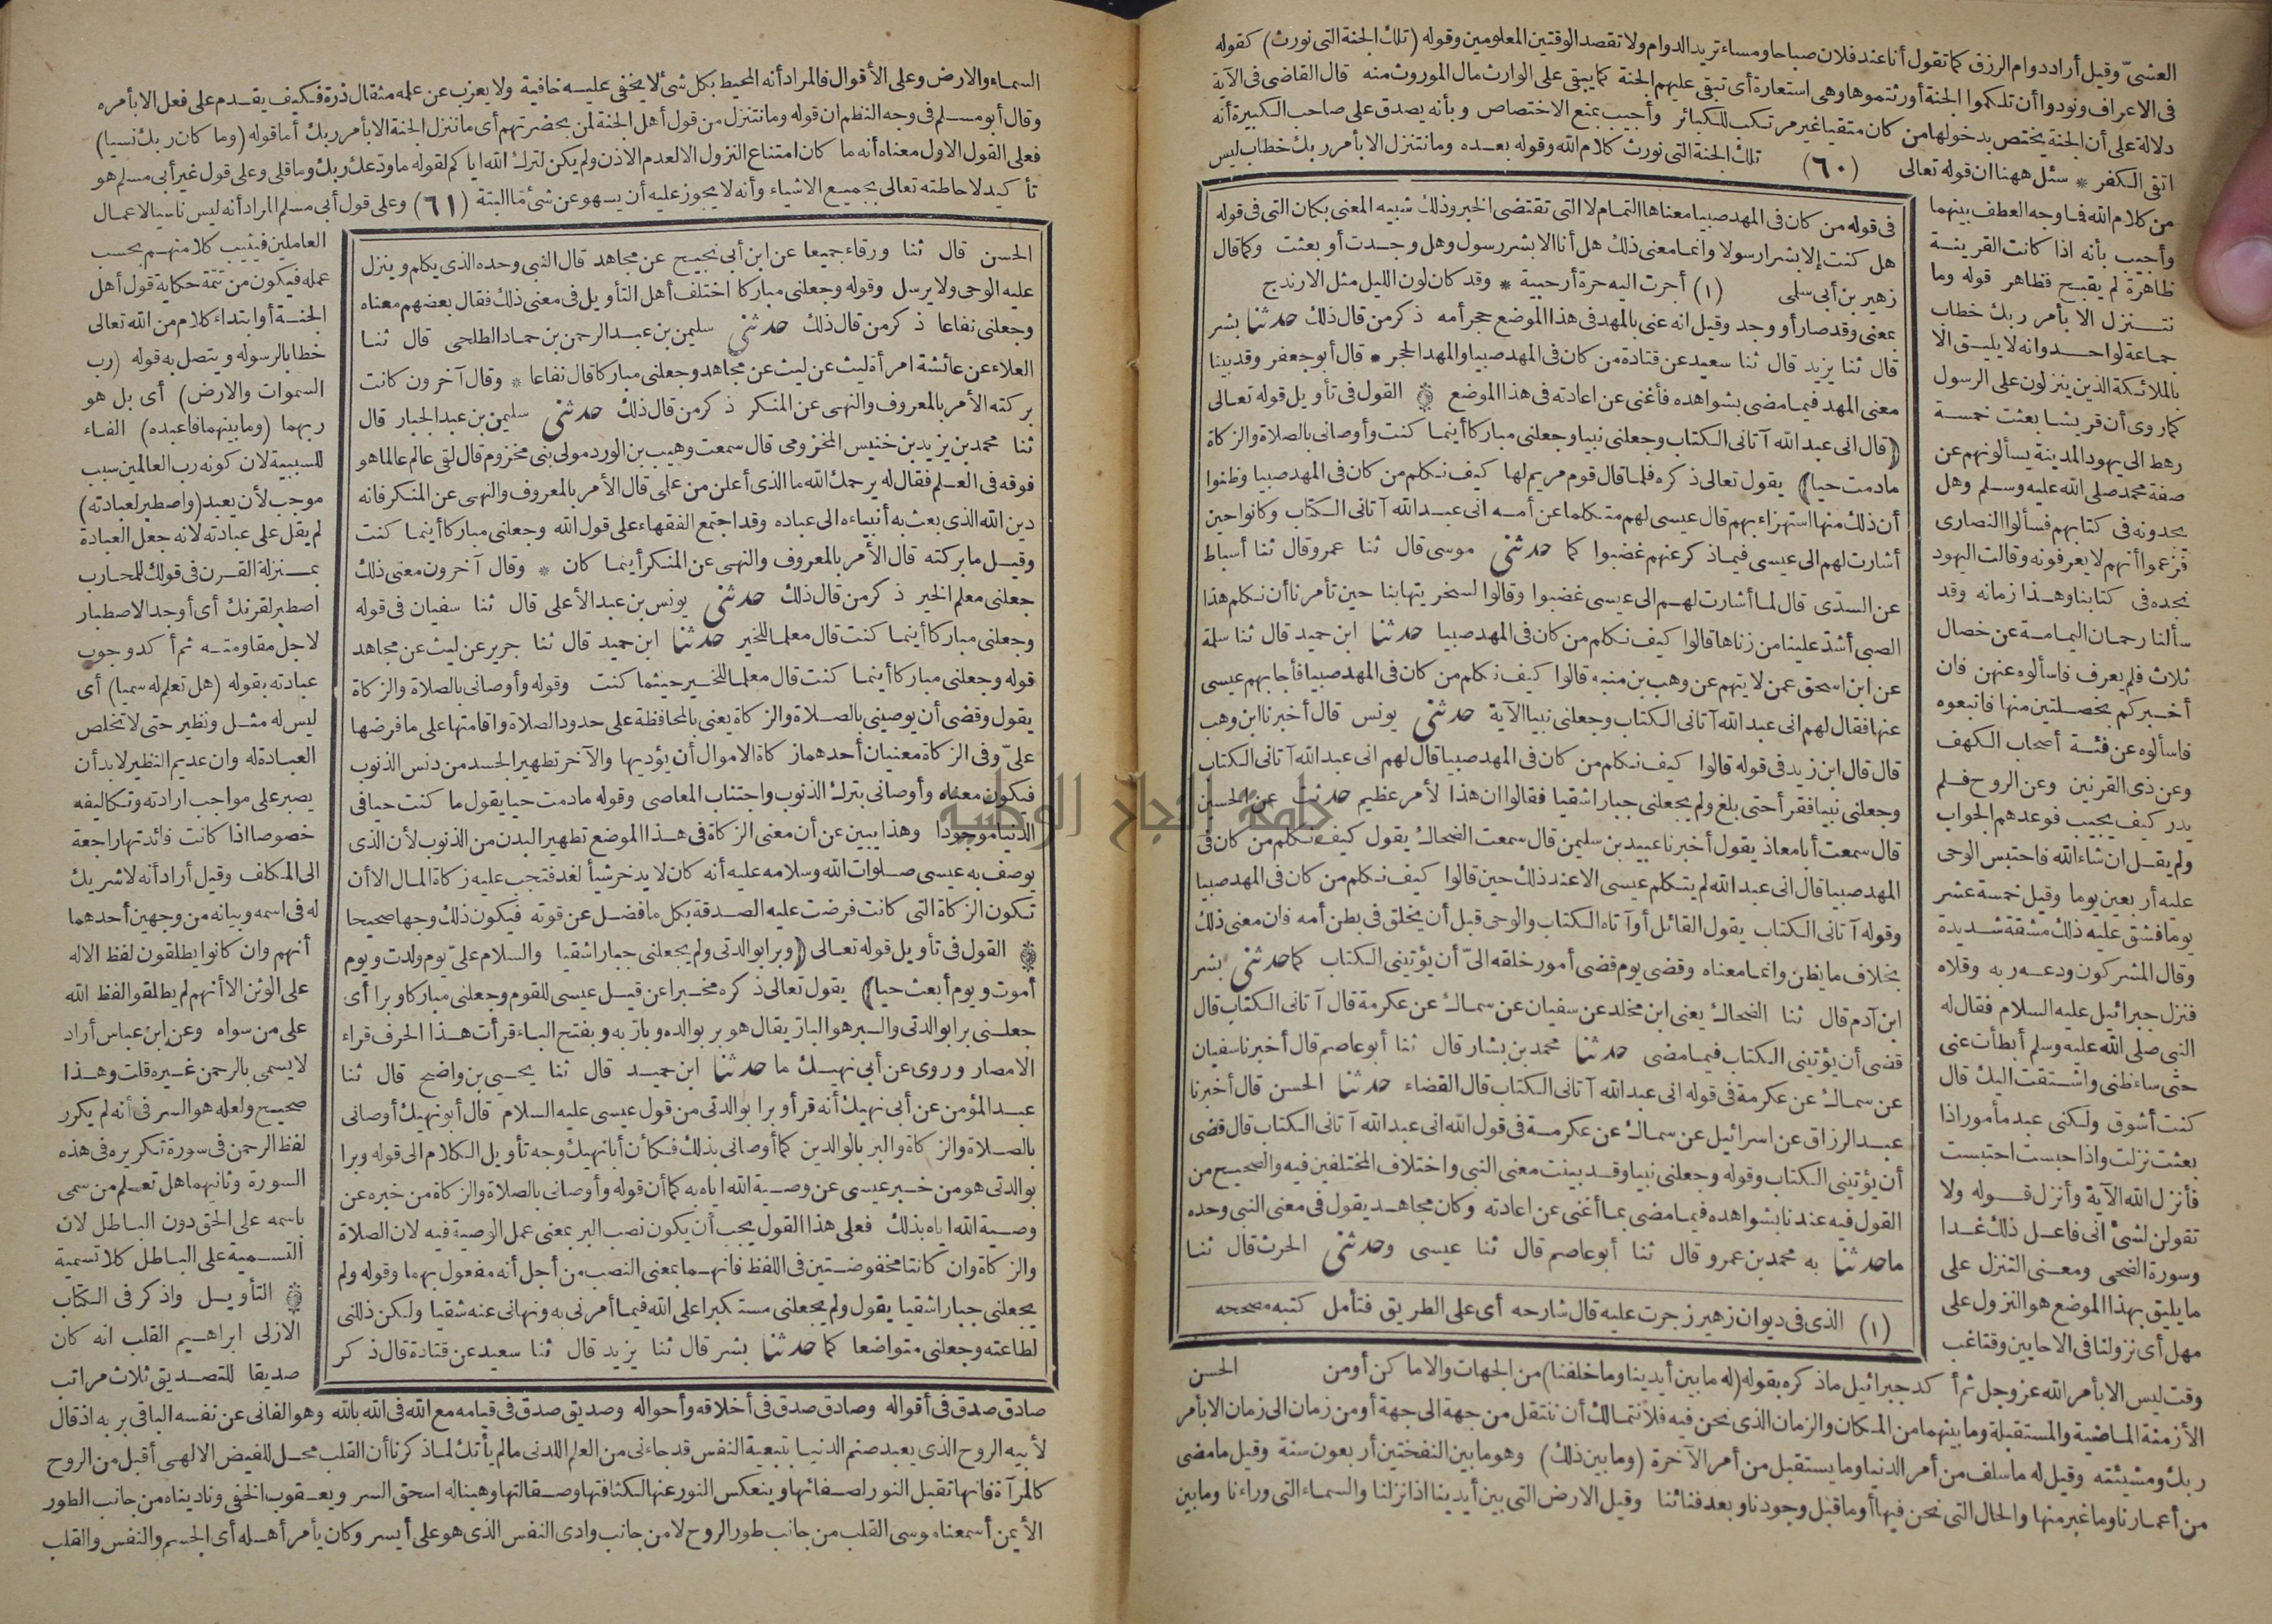 العشىّ وقيل أراد دوام الرزق كما تقول أنا عند فلان صباحا ومساء تريد الدوام ولا تقصد الوقتين المعلومين وقوله (تلك الجنة التى نورث) كقوله
فى الاعراف ونودوا أن تلكموا الجنة أورثتموها وهى استعارة أى تبقى عليهم الجنة كما يبقى على الوارث مال الموروث منه قال القاضى فى الآية
دلالة على أن الجنة يختص بدخولها من كان متقيا غير مرتكب للكبائر وأجيب بمنع الاختصاص وبأنه يصدق على صاحب الكبيرة أنه
اتقى الكفر * سئل ههنا ان قوله تعالى (٦٠) تلك الجنة التى نورث كلام الله وقوله بعده وما نتنزل الا بأمر ربك خطاب ليس
من كلام الله فما وجه العطف بينهما
وأجيب بأنه اذا كانت القرينة
ظاهرة لم يقبح فظاهر قوله وما
نتنزل الا بأمر ربك خطاب
جماعة لواحد وانه لا يليق الا
بالملائكة الذين ينزلون على الرسول
كما روى أن قريشا بعثت خمسة
رهط الى يهود المدينة يسألونهم عن
صفة محمد صلى الله عليه وسلم وهل
يجدونه فى كتابهم فسألوا النصارى
فزعموا أنهم لا يعرفونه وقالت اليهود
نجده فى كتابنا وهذا زمانه وقد
سألنا رحمان اليمامة عن خصال
ثلاث فلم يعرف فاسألوه عنهن فان
أخبركم بخصلتين منها فاتبعوه
فاسألوه عن فتية أصحاب الكهف
وعن ذى القرنين وعن الروح فلم
يدر كيف يجيب فوعدهم الجواب
ولم يقل ان شاء الله فاحتبس الوحى
عليه أربعين يوما وقيل خمسة عشر
يوما فشق عليه ذلك مشقة شديدة
وقال المشركون ودعه ربه وقلاه
فنزل جبرائيل عليه السلام فقال له
النبى صلى الله عليه وسلم أبطأت عنى
حتى ساء ظنى واشتقت اليك قال
كنت أشوق ولكنى عبد مأمور اذا
بعثت نزلت واذا حبست احتبست
فأنزل الله الآية وأنزل قوله ولا
تقولن لشئ انى فاعل ذلك غدا
وسورة الضحى ومعنى التنزل على
ما يليق بهذا الموضع هو النزول على
مهل أى نزولنا فى الاحايين وقتا غب
فى قوله من كان فى المهد صبيا معناها التمام لا التى تقتضى الخبر وذلك شبيه المعنى بكان التى فى قوله
هل كنت إلا بشرا رسولا وانما معنى ذلك هل أنا الا بشر رسول وهل وجدت أو بعثت وكما قال
زهير بن أبى سلمى (١) أجرت اليه حرة أرحبية * وقد كان لون الليل مثل الارندج
بمعنى وقد صار أو وجد وقيل انه عنى بالمهد فى هذا الموضع حجر أمه ذكر من قال ذلك حدثنا بشر
قال ثنا يزيد قال ثنا سعيد عن قتادة من كان فى المهد صبيا والمهد الحجر * قال أبو جعفر وقد بينا
معنى المهد فيما مضى بشواهده فأغنى عن اعادته فى هذا الموضع القول فى تأويل قوله تعالى
(قال انى عبد الله آتانى الكتاب وجعلنى نبيا وجعلنى مباركا أينما كنت وأوصانى بالصلاة والزكاة
ما دمت حيا) يقول تعالى ذكره فلما قال قوم مريم لها كيف نكلم من كان فى المهد صبيا وظنوا
أن ذلك منها استهزاء بهم قال عيسى لهم متكلما عن أمه انى عبد الله آتانى الكتاب وكانوا حين
أشارت لهم الى عيسى فيما ذكر عنهم غضبوا كما حدثنى موسى قال ثنا عمرو قال ثنا أسباط
عن السدّى قال لما أشارت لهم الى عيسى غضبوا وقالوا لسخريتها بنا حين تأمرنا أن نكلم هذا
الصبى أشدّ علينا من زناها قالوا كيف نكلم من كان فى المهد صبيا حدثنا ابن حميد قال ثنا سلمة
عن ابن اسحق عمن لا يتهم عن وهب بن منبه قالوا كيف نكلم من كان فى المهد صبيا فأجابهم عيسى
عنها فقال لهم انى عبد الله آتانى الكتاب وجعلنى نبيا الآية حدثنى يونس قال أخبرنا ابن وهب
قال قال ابن زيد فى قوله قالوا كيف نكلم من كان فى المهد صبيا قال لهم انى عبد الله آتانى الكتاب
وجعلنى نبيا فقرأ حتى بلغ ولم يجعلنى جبارا شقيا فقالوا ان هذا لأمر عظيم حدثت عن الحسين
قال سمعت أبا معاذ يقول أخبرنا عبيد بن سليمن قال سمعت الضحاك يقول كيف نكلم من كان فى
المهد صبيا قال انى عبد الله لم يتكلم عيسى الا عند ذلك حين قالوا كيف نكلم من كان فى المهد صبيا
وقوله آتانى الكتاب يقول القائل أو آتاه الكتاب والوحى قبل أن يخلق فى بطن أمه فان معنى ذلك
بخلاف ما يظن وانما معناه وقضى يوم قضى أمور خلقه الىّ أن يؤتينى الكتاب كما حدثنى بشر
ابن آدم قال ثنا الضحاك يعنى ابن مخلد عن سفيان عن سماك عن عكرمة قال آتانى الكتاب قال
قضى أن يؤتينى الكتاب فيما مضى حدثنا محمد بن بشار قال ثنا أبو عاصم قال أخبرنا سفيان
عن سماك عن عكرمة فى قوله انى عبد الله آتانى الكتاب قال القضاء حدثنا الحسن قال أخبرنا
عبد الرزاق عن اسرائيل عن سماك عن عكرمة فى قول الله انى عبد الله آتانى الكتاب قال قضى
أن يؤتينى الكتاب وقوله وجعلنى نبيا وقد بينت معنى النبى واختلاف المختلفين فيه والصحيح من
القول فيه عندنا بشواهده فيما مضى بما أغنى عن اعادته وكان مجاهد يقول فى معنى النبى وحده
ما حدثنا به محمد بن عمرو قال ثنا أبو عاصم قال ثنا عيسى وحدثنى الحرث قال ثنا
(١) الذى فى ديوان زهير زجرت عليه قال شارحه أى على الطريق فتأمل كتبه مصححه
وقت ليس الا بأمر الله عز وجل ثم أكد جبرائيل ما ذكره بقوله (له ما بين أيدينا وما خلفنا) من الجهات والاماكن أو من الحسن
الأزمنة الماضية والمستقبلة وما بينهما من المكان والزمان الذى نحن فيه فلا نتمالك أن ننتقل من جهة الى جهة أو من زمان الى زمان الا بأمر
ربك ومشيئته وقيل له ما سلف من أمر الدنيا وما يستقبل من أمر الآخرة (وما بين ذلك) وهو ما بين النفختين أربعون سنة وقيل ما مضى
من أعمارنا وما غبر منها والحال التى نحن فيها أو ما قبل وجودنا وبعد فنائنا وقيل الارض التى بين أيدينا اذا نزلنا والسماء التى وراءنا وما بين
السماء والارض وعلى الأقوال فالمراد أنه المحيط بكل شئ لا يخفى عليه خافية ولا يعزب عن علمه مثقال ذرة فكيف يقدم على فعل الا بأمره
وقال أبو مسلم فى وجه النظم ان قوله وما نتنزل من قول أهل الجنة لمن بحضرتهم أى ما ننزل الجنة الا بأمر ربك أما قوله (وما كان ربك نسيا)
فعلى القول الاول معناه أنه ما كان امتناع النزول الا لعدم الاذن ولم يكن لترك الله اياكم لقوله ما ودّعك ربك وما قلى وعلى قول غير أبى مسلم هو
تأكيد لاحاطته تعالى بجميع الاشياء وأنه لا يجوز عليه أن يسهو عن شئ مّا البتة (٦١) وعلى قول أبى مسلم المراد أنه ليس ناسيا لاعمال
الحسن قال ثنا ورقاء جميعا عن ابن أبى نجيح عن مجاهد قال النبى وحده الذى يكلم وينزل
عليه الوحى ولا يرسل وقوله وجعلنى مباركا اختلف أهل التأويل فى معنى ذلك فقال بعضهم معناه
وجعلنى نفاعا ذكر من قال ذلك حدثنى سليمن بن عبد الرحمن بن حماد الطلحى قال ثنا
العلاء عن عائشة امرأة ليث عن ليث عن مجاهد وجعلنى مباركا قال نفاعا * وقال آخرون كانت
بركته الأمر بالمعروف والنهى عن المنكر ذكر من قال ذلك حدثنى سليمن بن عبد الجبار قال
ثنا محمد بن يزيد بن خنيس المخزومى قال سمعت وهيب بن الورد مولى بنى مخزوم قال لقى عالم عالما هو
فوقه فى العلم فقال له يرحمك الله ما الذى أعلن من علمى قال الأمر بالمعروف والنهى عن المنكر فانه
دين الله الذى بعث به أنبياءه الى عباده وقد اجتمع الفقهاء على قول الله وجعلنى مباركا أينما كنت
وقيل ما بركته قال الأمر بالمعروف والنهى عن المنكر أينما كان * وقال آخرون معنى ذلك
جعلنى معلم الخير ذكر من قال ذلك حدثنى يونس بن عبد الأعلى قال ثنا سفيان فى قوله
وجعلنى مباركا أينما كنت قال معلما للخير حدثنا ابن حميد قال ثنا جرير عن ليث عن مجاهد
قوله وجعلنى مباركا أينما كنت قال معلما للخير حيثما كنت وقوله وأوصانى بالصلاة والزكاة
يقول وقضى أن يوصينى بالصلاة والزكاة يعنى بالمحافظة على حدود الصلاة واقامتها على ما فرضها
علىّ وفى الزكاة معنيان أحدهما زكاة الاموال أن يؤديها والآخر تطهير الجسد من دنس الذنوب
فيكون معناه وأوصانى بترك الذنوب واجتناب المعاصى وقوله ما دمت حيا يقول ما كنت حيا فى
الدنيا موجودا وهذا يبين عن أن معنى الزكاة فى هذا الموضع تطهير البدن من الذنوب لأن الذى
يوصف به عيسى صلوات الله وسلامه عليه أنه كان لا يدخر شيأ لغد فتجب عليه زكاة المال الا أن
تكون الزكاة التى كانت فرضت عليه الصدقة بكل ما فضل عن قوته فيكون ذلك وجها صحيحا
القول فى تأويل قوله تعالى (وبرا بوالدتى ولم يجعلنى جبارا شقيا والسلام علىّ يوم ولدت ويوم
أموت ويوم أبعث حيا) يقول تعالى ذكره مخبرا عن قيل عيسى للقوم وجعلنى مباركا وبرا أى
جعلنى برا بوالدتى والبر هو البارّ يقال هو بر بوالده وبارّ به وبفتح الباء قرأت هذا الحرف قراء
الامصار وروى عن أبى نهيك ما حدثنا ابن حميد قال ثنا يحيى بن واضح قال ثنا
عبد المؤمن عن أبى نهيك أنه قرأ وبرا بوالدتى من قول عيسى عليه السلام قال أبو نهيك أوصانى
بالصلاة والزكاة والبر بالوالدين كما أوصانى بذلك فكأن أبا نهيك وجه تأويل الكلام الى قوله وبرا
بوالدتى هو من خبر عيسى عن وصية الله اياه به كما أن قوله وأوصانى بالصلاة والزكاة من خبره عن
وصية الله اياه بذلك فعلى هذا القول يجب أن يكون نصب البر بمعنى عمل الوصية فيه لان الصلاة
والزكاة وان كانتا مخفوضتين فى اللفظ فانهما بمعنى النصب من أجل أنه مفعول بهما وقوله ولم
يجعلنى جبارا شقيا يقول ولم يجعلنى مستكبرا على الله فيما أمرنى به ونهانى عنه شقيا ولكن ذللنى
لطاعته وجعلنى متواضعا كما حدثنا بشر قال ثنا يزيد قال ثنا سعيد عن قتادة قال ذكر
العاملين فيثيب كلا منهم بحسب
عمله فيكون من تتمة حكاية قول أهل
الجنة أو ابتداء كلام من الله تعالى
خطابا لرسوله ويتصل به قوله (رب
السموات والارض) أى بل هو
ربهما (وما بينهما فاعبده) الفاء
للسببية لان كونه رب العالمين سبب
موجب لأن يعبد (واصطبر لعبادته)
لم يقل على عبادته لانه جعل العبادة
بمنزلة القرن فى قولك للمحارب
اصطبر لقرنك أى أوجد الاصطبار
لاجل مقاومته ثم أكد وجوب
عبادته بقوله (هل تعلم له سميا) أى
ليس له مثل ونظير حتى لا تخلص
العبادة له وان عديم النظير لا بد أن
يصبر على مواجب ارادته وتكاليفه
خصوصا اذا كانت فائدتها راجعة
الى المكلف وقيل أراد أنه لا شريك
له فى اسمه وبيانه من وجهين أحدهما
أنهم وان كانوا يطلقون لفظ الاله
على الوثن الا أنهم لم يطلقوا لفظ الله
على من سواه وعن ابن عباس أراد
لا يسمى بالرحمن غيره قلت وهذا
صحيح ولعله هو السر فى أنه لم يكرر
لفظ الرحمن فى سورة تكريره فى هذه
السورة وثانيهما هل تعلم من سمى
باسمه على الحق دون الباطل لان
التسمية على الباطل كلا تسمية
التأويل واذكر فى الكتاب
الازلى ابراهيم القلب انه كان
صديقا للتصديق ثلاث مراتب
صادق صدق فى أقواله وصادق صدق فى أخلاقه وأحواله وصديق صدق فى قيامه مع الله فى الله بالله وهو الفانى عن نفسه الباقى بربه اذ قال
لأبيه الروح الذى يعبد صنم الدنيا بتبعية النفس قد جاءنى من العلم اللدنى ما لم يأتك لما ذكرنا أن القلب محل للفيض الالهى أقبل من الروح
كالمرآة فانها تقبل النور لصفائها وينعكس النور عنها لكثافتها وصقالتها وهبنا له اسحق السر ويعقوب الخفى وناديناه من جانب الطور
الأيمن أسمعنا موسى القلب من جانب طور الروح لا من جانب وادى النفس الذى هو على أيسر وكان يأمر أهله أى الجسم والنفس والقلب
جامعة النجاح الوطنية